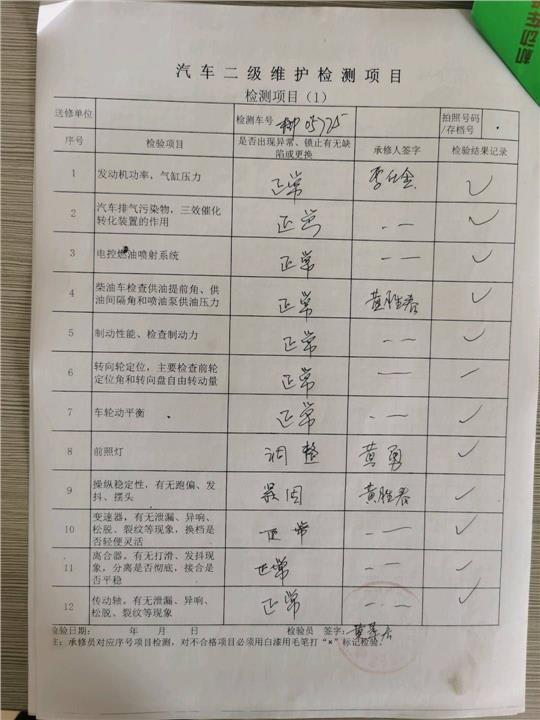 汽车二级维护检测项目
检测项目（1）
送修单位 检测车号 05725 拍照号码/存档号
序号 检验项目 是否出现异常、锁止有无缺陷或更换 承修人签字 检验结果记录
1 发动机功率，气缸压力 正常 李仕金 ✓
2 汽车排气污染物，三效催化转化装置的作用 正常 — — ✓
3 电控燃油喷射系统 正常 — — ✓
4 柴油车检查供油提前角、供油间隔角和喷油泵供油压力 正常 黄胜春 ✓
5 制动性能、检查制动力 正常 — — ✓
6 转向轮定位，主要检查前轮定位角和转向盘自由转动量 正常 — — ✓
7 车轮动平衡 正常 — — ✓
8 前照灯 调整 黄勇 ✓
9 操纵稳定性，有无跑偏、发抖、摆头 紧固 黄胜春 ✓
10 变速器，有无泄漏、异响、松脱、裂纹等现象，换档是否轻便灵活 正常 — — ✓
11 离合器。有无打滑、发抖现象，分离是否彻底，接合是否平稳 正常 — — ✓
12 传动轴。有无泄漏、异响、松脱、裂纹等现象 正常 — — ✓
检验日期： 年 月 日 检验员 签字：
注：承修员对应序号项目检测，对不合格项目必须用白漆用毛笔打“×”标记检验。